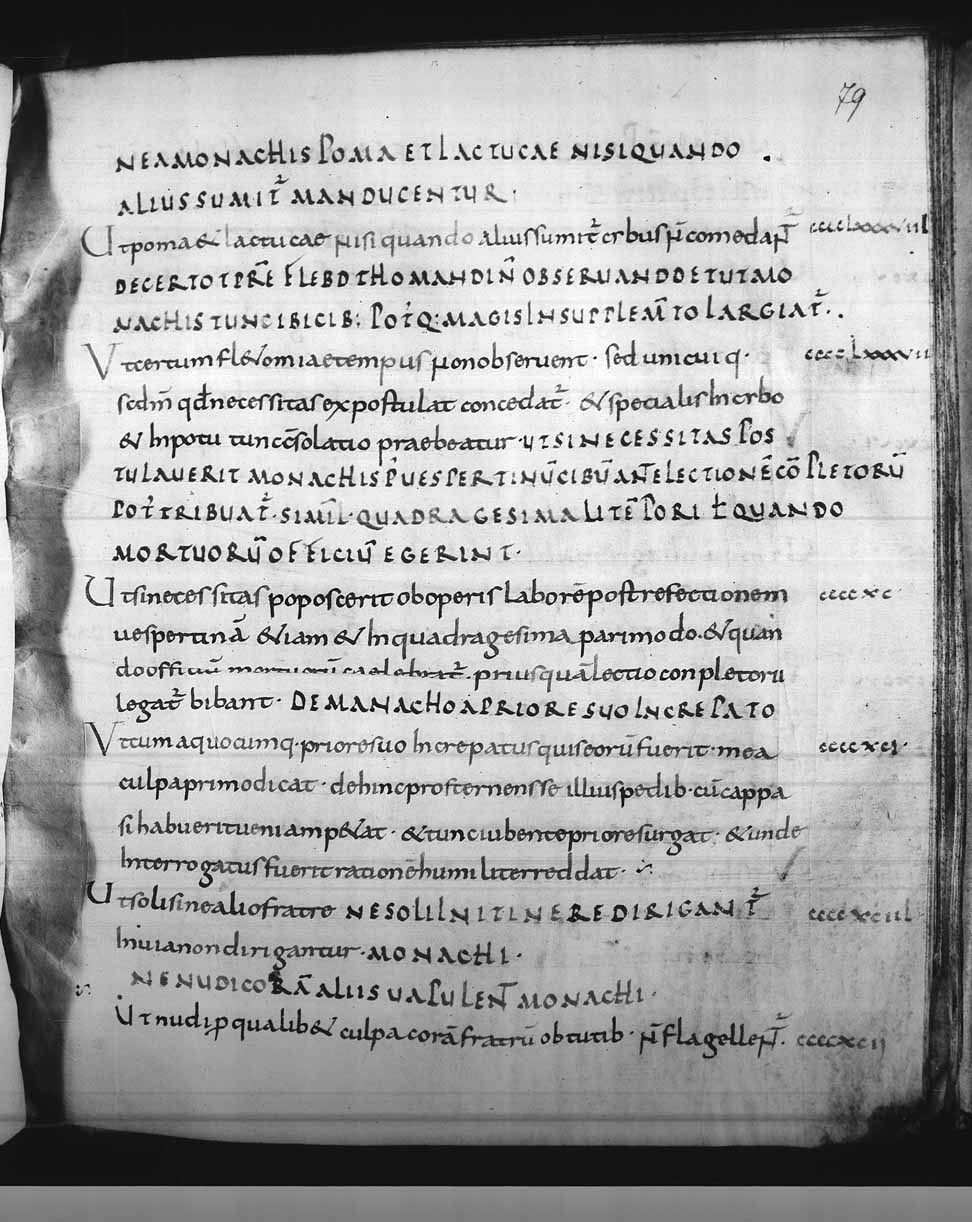 79
NEAMONACHIS POMA ET LACTUCAE NISI QUANDO .
ALIUS SUMIT̃ MANDUCENTUR ·
Ut poma & lactucae nisi quando alius sumit̃ cybus n̄ comedant̃ cccclxxxviiI
DE CERTO TP̄RE FLEBOTHOMANDI N̄ OBSERUANDO ET UT MO
NACHIS TUNC IBI CIB; POT̃Q: MAGIS IN SUPPLEM̄TO LARGIAT̃· .
Ut certum fl&omiae tempus non obseruent · sed unicuiq · cccclxxxvii
scdm̄ qd̄ necessitas expostulat concedat̃ · & specialis In cybo
& In potu tunc c̄solatio praebeatur · UT SI NECESSITAS POS
TULAUERIT MONACHIS P̄ UESPERTINŪ CIBŪ ANT̄ LECTIONĒ CŌPLETORŪ
POT̃ TRIBUAT̃ · SIMIL̄ · QUADRAGESIMALI TĒPORI ł QUANDO
MORTUORŪ OFFICIŪ EGERINT ·
Ut si necessitas poposcerit ob operis laborē post refectionem ccccxc ·
uespertinā &iam & In quadragesima pari modo · & quan
do officiū mortuorū caelebrat̃ · priusquā lectio conpletorii
legat̃ bibant · DE MANACHO A PRIORE SUO INCREPATO
Ut cum a quocumq · priore suo Increpatus quis eorū fuerit · mea ccccxcI ·
culpa primo dicat · dehinc prosternens se illius pedib · cū cappa
si habuerit ueniam p&at · & tunc iubente priore surgat · & unde
Interrogatus fuerit rationē humiliter reddat ·
Ut soli sine alio fratre NE SOLI IN ITINERE DIRIGANT̃ ccccxciiI
In uia non dirigantur · MONACHI ·
NE NUDI CORĀ ALIIS UAPULENT̄ MONACHI ·
Ut nudi p qualib& culpa corā fratrū obtutib · n̄ flagellent̃ · ccccxcii